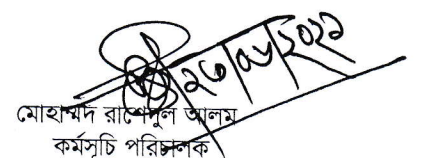 ২৩/০৬/২০২১
মোহাম্মদ রাশেদুল আলম
কর্মসূচি পরিচালক